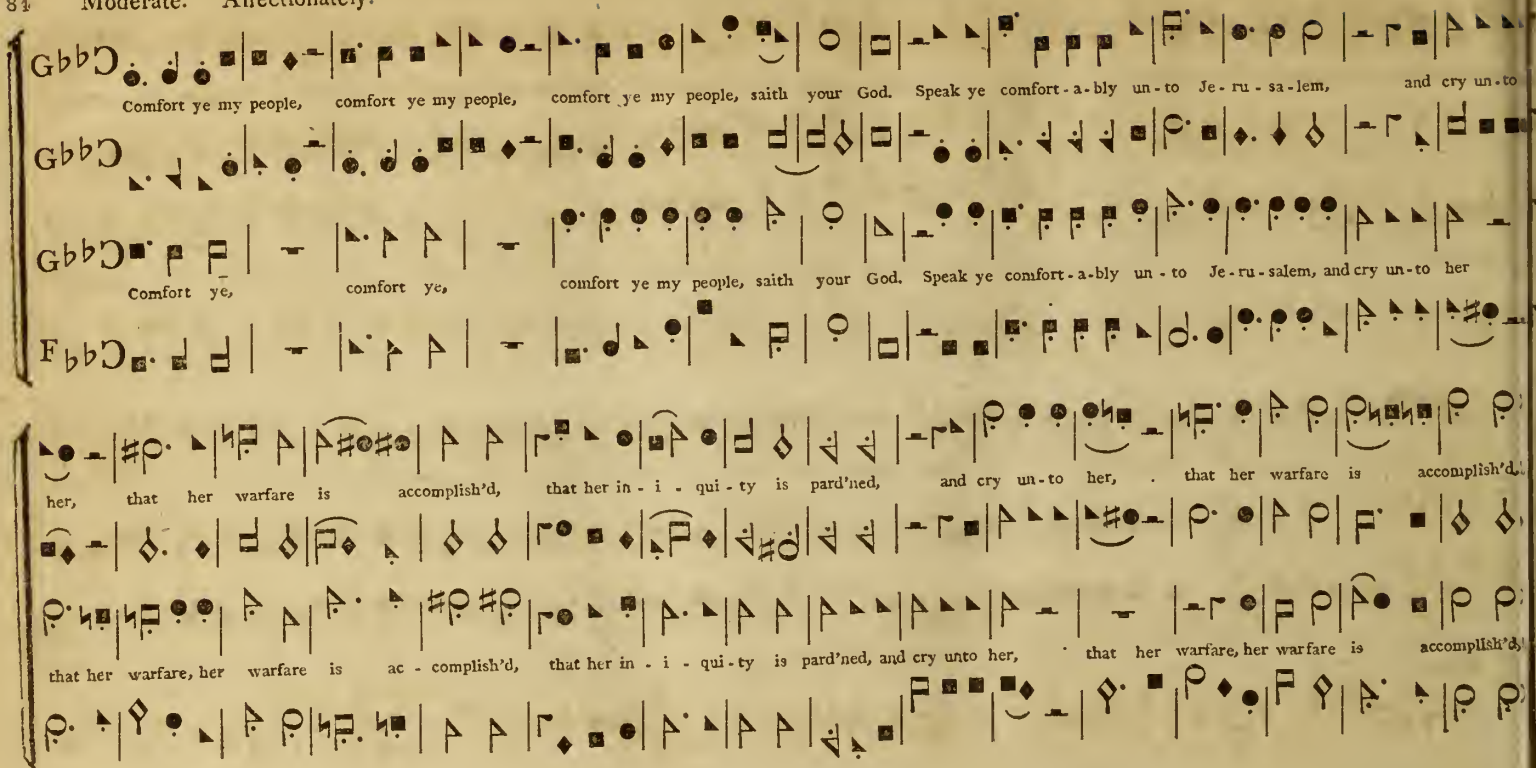 84 Moderate. Affectionately.
Comfort ye my people, comfort ye my people, comfort ye my people, saith your God. Speak ye comfort-a-bly un-to Je-ru-sa-lem, and cry un-to
Comfort ye, comfort ye, comfort ye my people, saith your God. Speak ye comfort-a-bly un-to Je-ru-salem, and cry un-to her
her, that her warfare is accomplish'd, that her in-i-qui-ty is pard'ned, and cry un-to her, that her warfare is accomplish'd,
that her warfare, her warfare is ac-complish'd, that her in-i-qui-ty is pard'ned, and cry unto her, that her warfare, her warfare is accomplish'd,